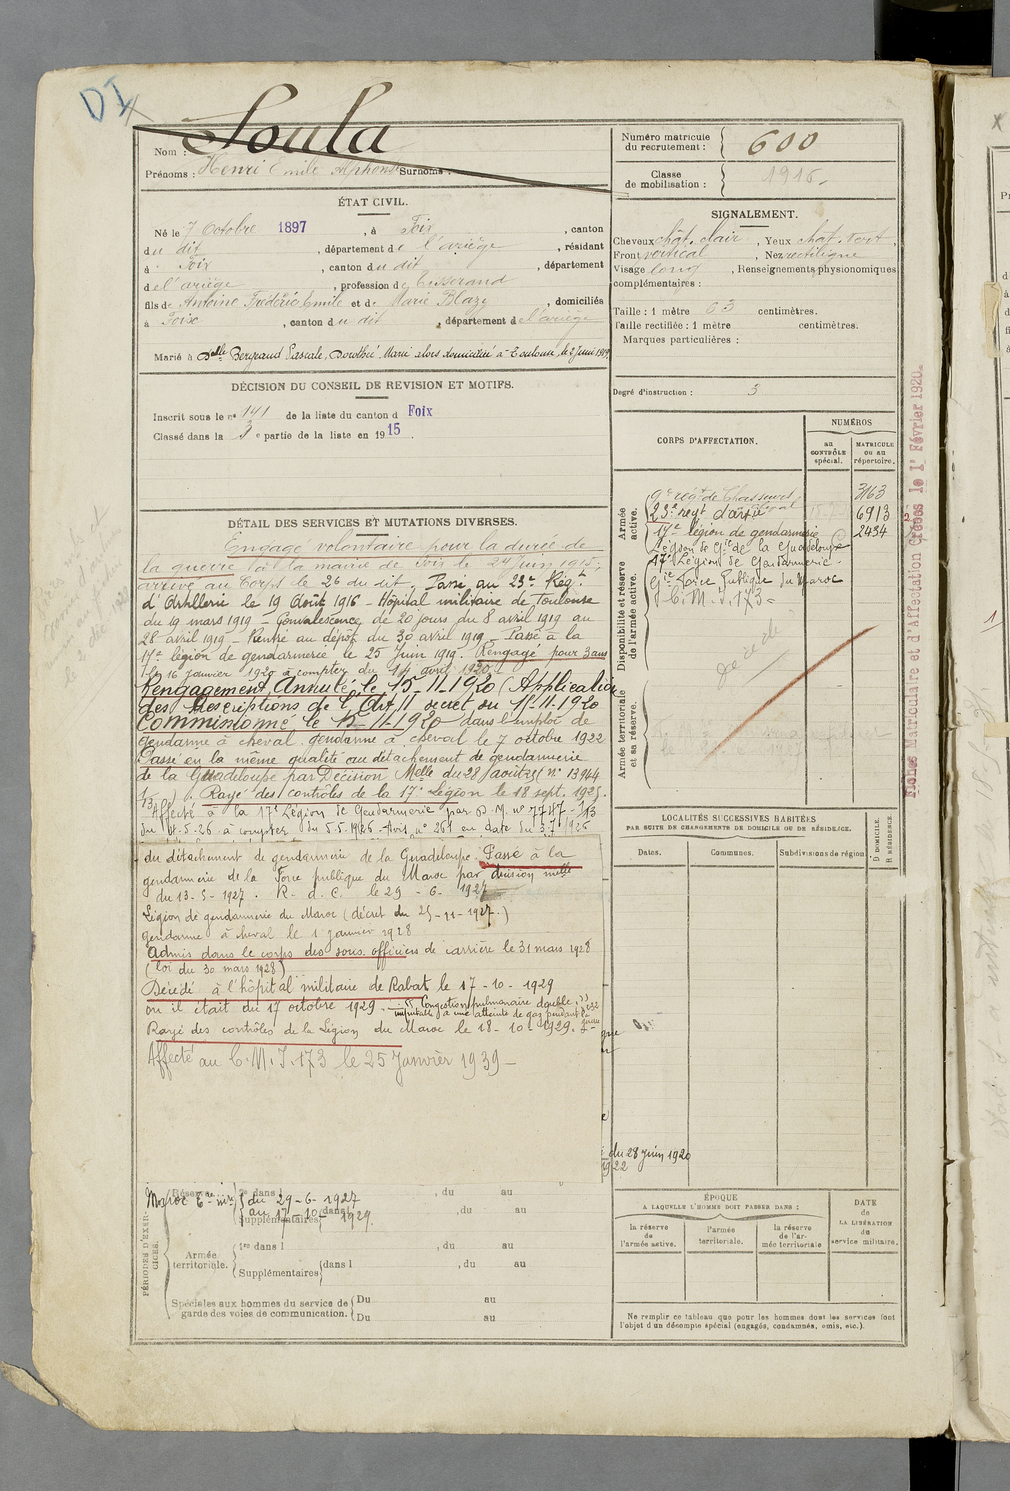 DI
Nom : Soula
Prénoms : Henri Emile Alphonse Surnoms :
Numéro matricule du recrutement : 600
Classe de mobilisation : 1915
ÉTAT CIVIL.
Né le 7 Octobre 1897, à Foix, canton
du dit, département de l'ariège, résidant
à Foix, canton du dit, département
de l'ariège, profession de Tisserand
fils de Antoine Frédéric Emile et de Marie Blazy, domiciliés
à Foix, canton du dit, département de l'ariège
Marié à Delle Bergeaud Pascale, Dorothée, Marie alors domiciliée à Toulouse, le 2 Juin 1919
SIGNALEMENT.
Cheveux chât. clair, Yeux chat. vert,
Front vertical, Nez rectiligne
Visage long, Renseignements physionomiques
complémentaires :
Taille : 1 mètre 63 centimètres.
Taille rectifiée : 1 mètre centimètres.
Marques particulières :
Degré d'instruction : 3
DÉCISION DU CONSEIL DE REVISION ET MOTIFS.
Inscrit sous le n° 141 de la liste du canton d Foix
Classé dans la 3 e partie de la liste en 1915.
DÉTAIL DES SERVICES ET MUTATIONS DIVERSES.
Engagé volontaire pour la durée de
la guerre à la mairie de Foix le 24 juin 1915,
arrivé au Corps le 26 du dit. Passé au 23e Régt
d'Artillerie le 19 Août 1916 - Hôpital militaire de Toulouse
du 19 mars 1919 - Convalescence de 20 jours du 8 avril 1919 au
28 avril 1919 - Rentré au dépôt du 30 avril 1919 - Passé à la
17e légion de gendarmerie le 25 Juin 1919. Rengagé pour 3 ans
le 16 Janvier 1920 à compter du 14 avril 1920.
Rengagement Annulé le 15-11-1920 (Application
des Prescriptions de l'Art 11 décret du 11-11-1920
Commissionné le 15-11-1920 dans l'emploi de
gendarme à cheval. gendarme à cheval le 7 octobre 1922
Passé en la même qualité au détachement de gendarmerie
de la Guadeloupe par Décision Melle du 28 août 25 (n° 13944
1/13) Rayé des contrôles de la 17e Légion le 18 sept. 1925.
Affecté à la 17e Légion de Gendarmerie par D.M. n° 7747-1/13
du 4.5.26 à compter du 5.5.1926 Avis n° 261 en date du 3.7.1926
du détachement de gendarmerie de la Guadeloupe. Passé à la
gendarmerie de la Force publique du Maroc par décision melle
du 13-5-1927. R. d. C. le 29-6-1927
Légion de gendarmerie du Maroc (décret du 25-11-1927.)
Gendarme à cheval le 1 janvier 1928
Admis dans le corps des sous officiers de carrière le 31 mars 1928
(loi du 30 mars 1928)
Décédé à l'hôpital militaire de Rabat le 17-10-1929
où il était du 17 octobre 1929. Congestion pulmonaire double,
imputable à une atteinte de gaz pendant la guerre
Rayé des contrôles de la Légion du Maroc le 18-10-1929.
Affecté au C.M.I. 173 le 25 Janvier 1939 -
du 28 juin 1920
1922
CORPS D'AFFECTATION.
NUMÉROS
au CONTRÔLE spécial.
MATRICULE ou au répertoire.
Armée active.
9e régt de Chasseurs 3163
23e regt d'artie 6913
17e légion de gendarmerie 2434
Légion de Gie de la Guadeloupe
17e Légion de Gendarmerie.
Disponibilité et réserve de l'armée active.
Gie Force Publique du Maroc
C.M.I. 173
décédé
Armée territoriale et sa réserve.
Fiches Matriculaire et d'Affectation Créées le 1r Février 1920.
LOCALITÉS SUCCESSIVES HABITÉES
PAR SUITE DE CHANGEMENTS DE DOMICILE OU DE RÉSIDENCE.
Dates. Communes. Subdivisions de région. D. DOMICILE. R. RÉSIDENCE.
PÉRIODES D'EXERCICES.
Réserve
Maroc
du 29-6-1927
au 17-10-1929.
Supplémentaires dans l , du au
Armée territoriale. 1re dans l , du au
Supplémentaires dans l , du au
Spéciales aux hommes du service de garde des voies de communication. Du au
Du au
ÉPOQUE
A LAQUELLE L'HOMME DOIT PASSER DANS :
la réserve de l'armée active.
l'armée territoriale.
la réserve de l'armée territoriale
DATE de LA LIBÉRATION du service militaire.
Ne remplir ce tableau que pour les hommes dont les services font
l'objet d'un décompte spécial (engagés, condamnés, omis, etc.).